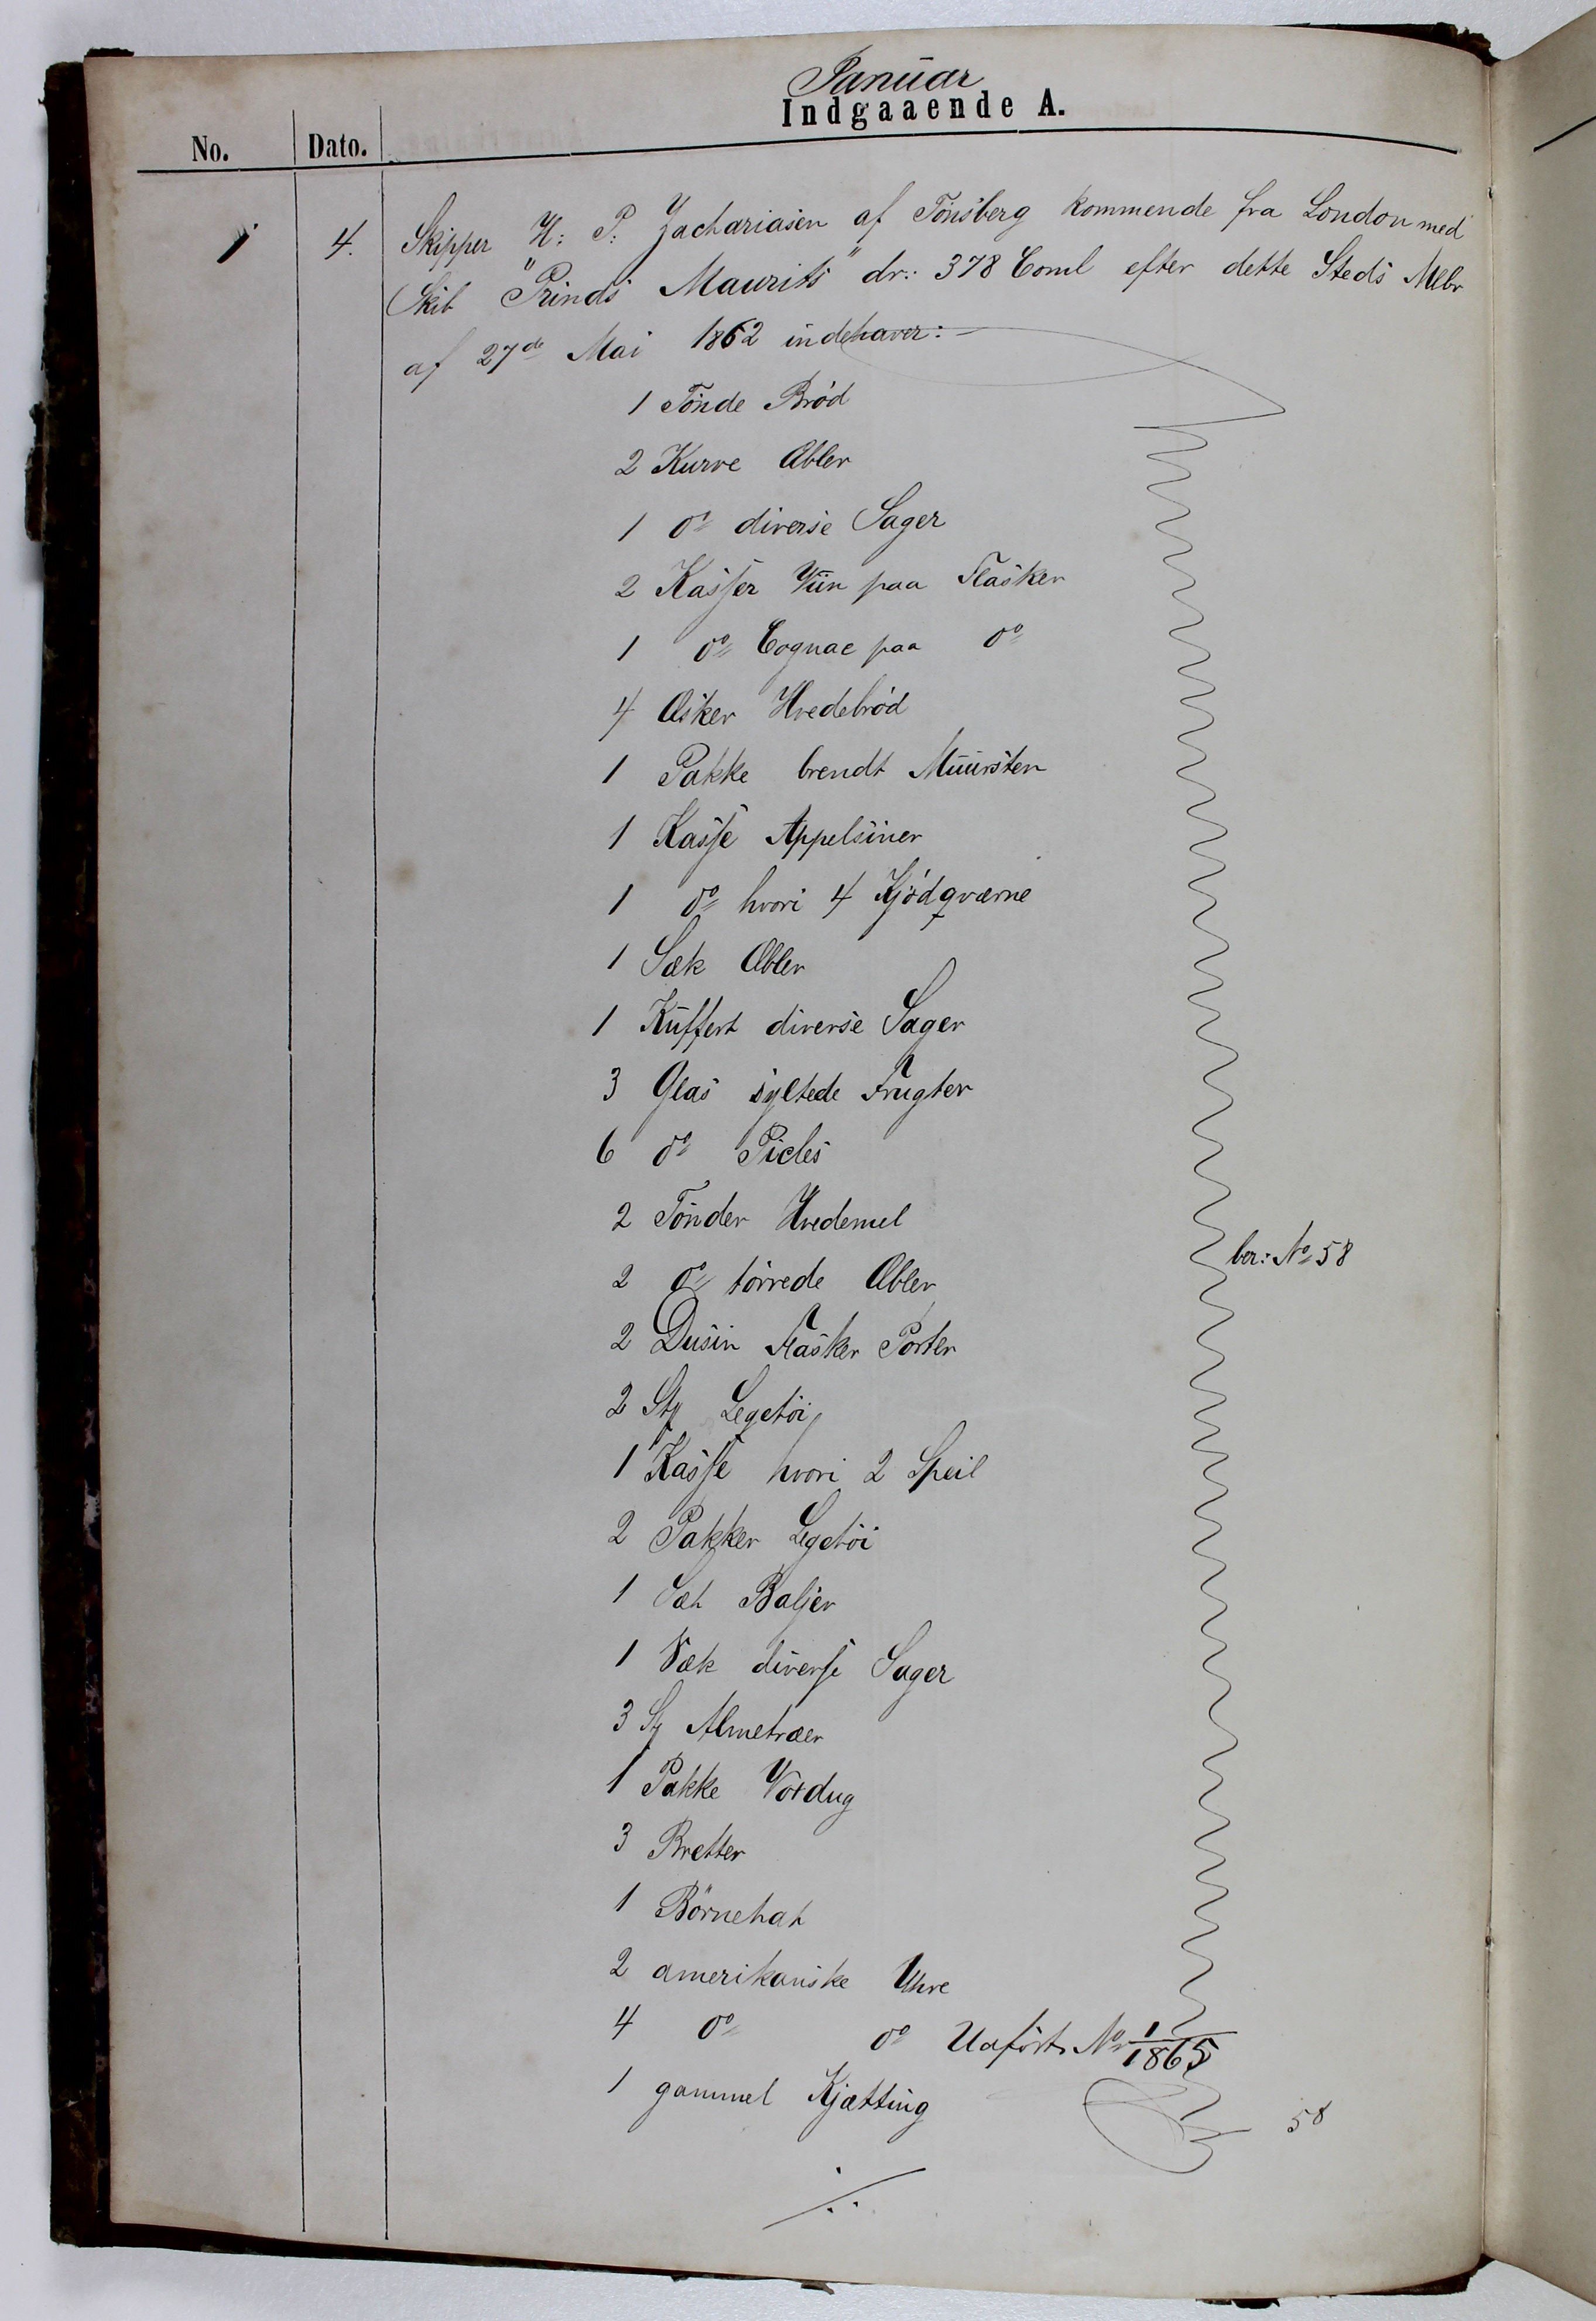 Januar
Indgaaende A.
No. Dato.
1 4. Skipper H: P: Zachariasen af Tönsberg kommende fra London med
Skib "Prinds Maurits" dr: 378 Coml efter dette Steds Mlbr
af 27de Mai 1862 indehaver:
1 Tönde Bröd
2 Kurve Æbler
1 do diverse Sager
2 Kasser Viin paa Flasker
1 do Cognac paa do
4 Æsker Hvedebröd
1 Pakke brendt Muursten
1 Kasse Appelsiner
1 do hvori 4 Kjödqværne
1 Sæk Æbler
1 Kuffert diverse Sager
3 Glas syltede Frugter
6 do Picles
2 Tönder Hvedemel
2 do törrede Æbler
ber: No 58
2 Dusin Flasker Porter
2 Sty Legetöi
1 Kasse hvori 2 Speil
2 Pakker Legetöi
1 Sæt Baljer
1 Sæk diverse Sager
3 St Almetræer
1 Pakke Voxdug
3 Bretter
1 Börnehat
2 amerikanske Uhre
4 do do Udfört No 1/1865
1 gammel Kjætting
58
./.